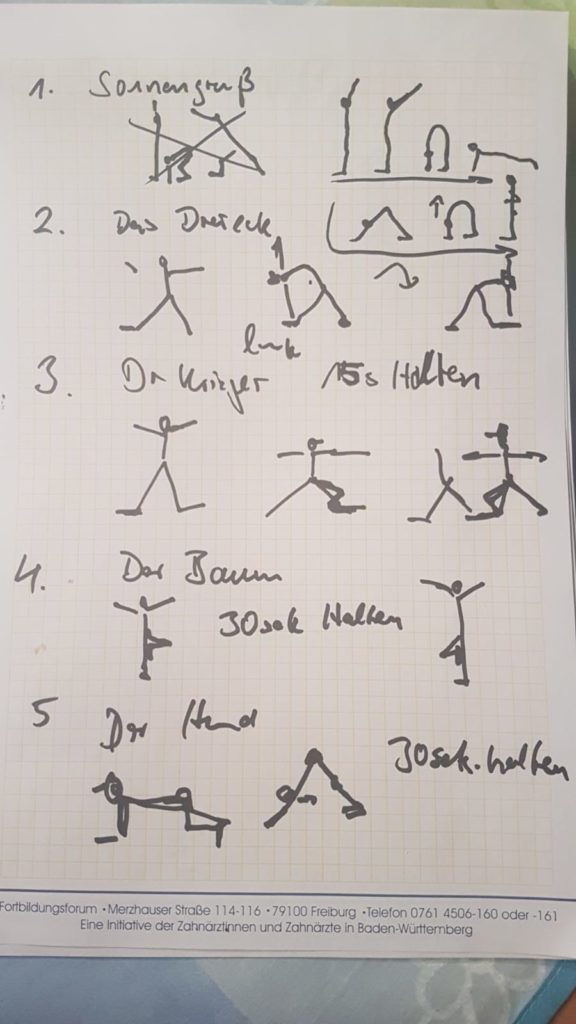 1. Sonnengruß
2. Das Dreieck
3. Der Krieger 15s Halten
4. Der Baum
30sek Halten
5 Der Hund
30sek. halten
Fortbildungsforum • Merzhauser Straße 114-116 • 79100 Freiburg • Telefon 0761 4506-160 oder -161
Eine Initiative der Zahnärztinnen und Zahnärzte in Baden-Württemberg